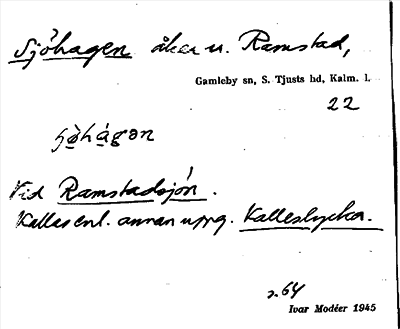 Sjöhagen åker u. Ramstad,
Gamleby sn, S. Tjusts hd, Kalm. l.
22
Vid Ramstadsjön.
Kallas enl. annan uppg. Kalleslyckor.
s. 64
Ivar Modéer 1945